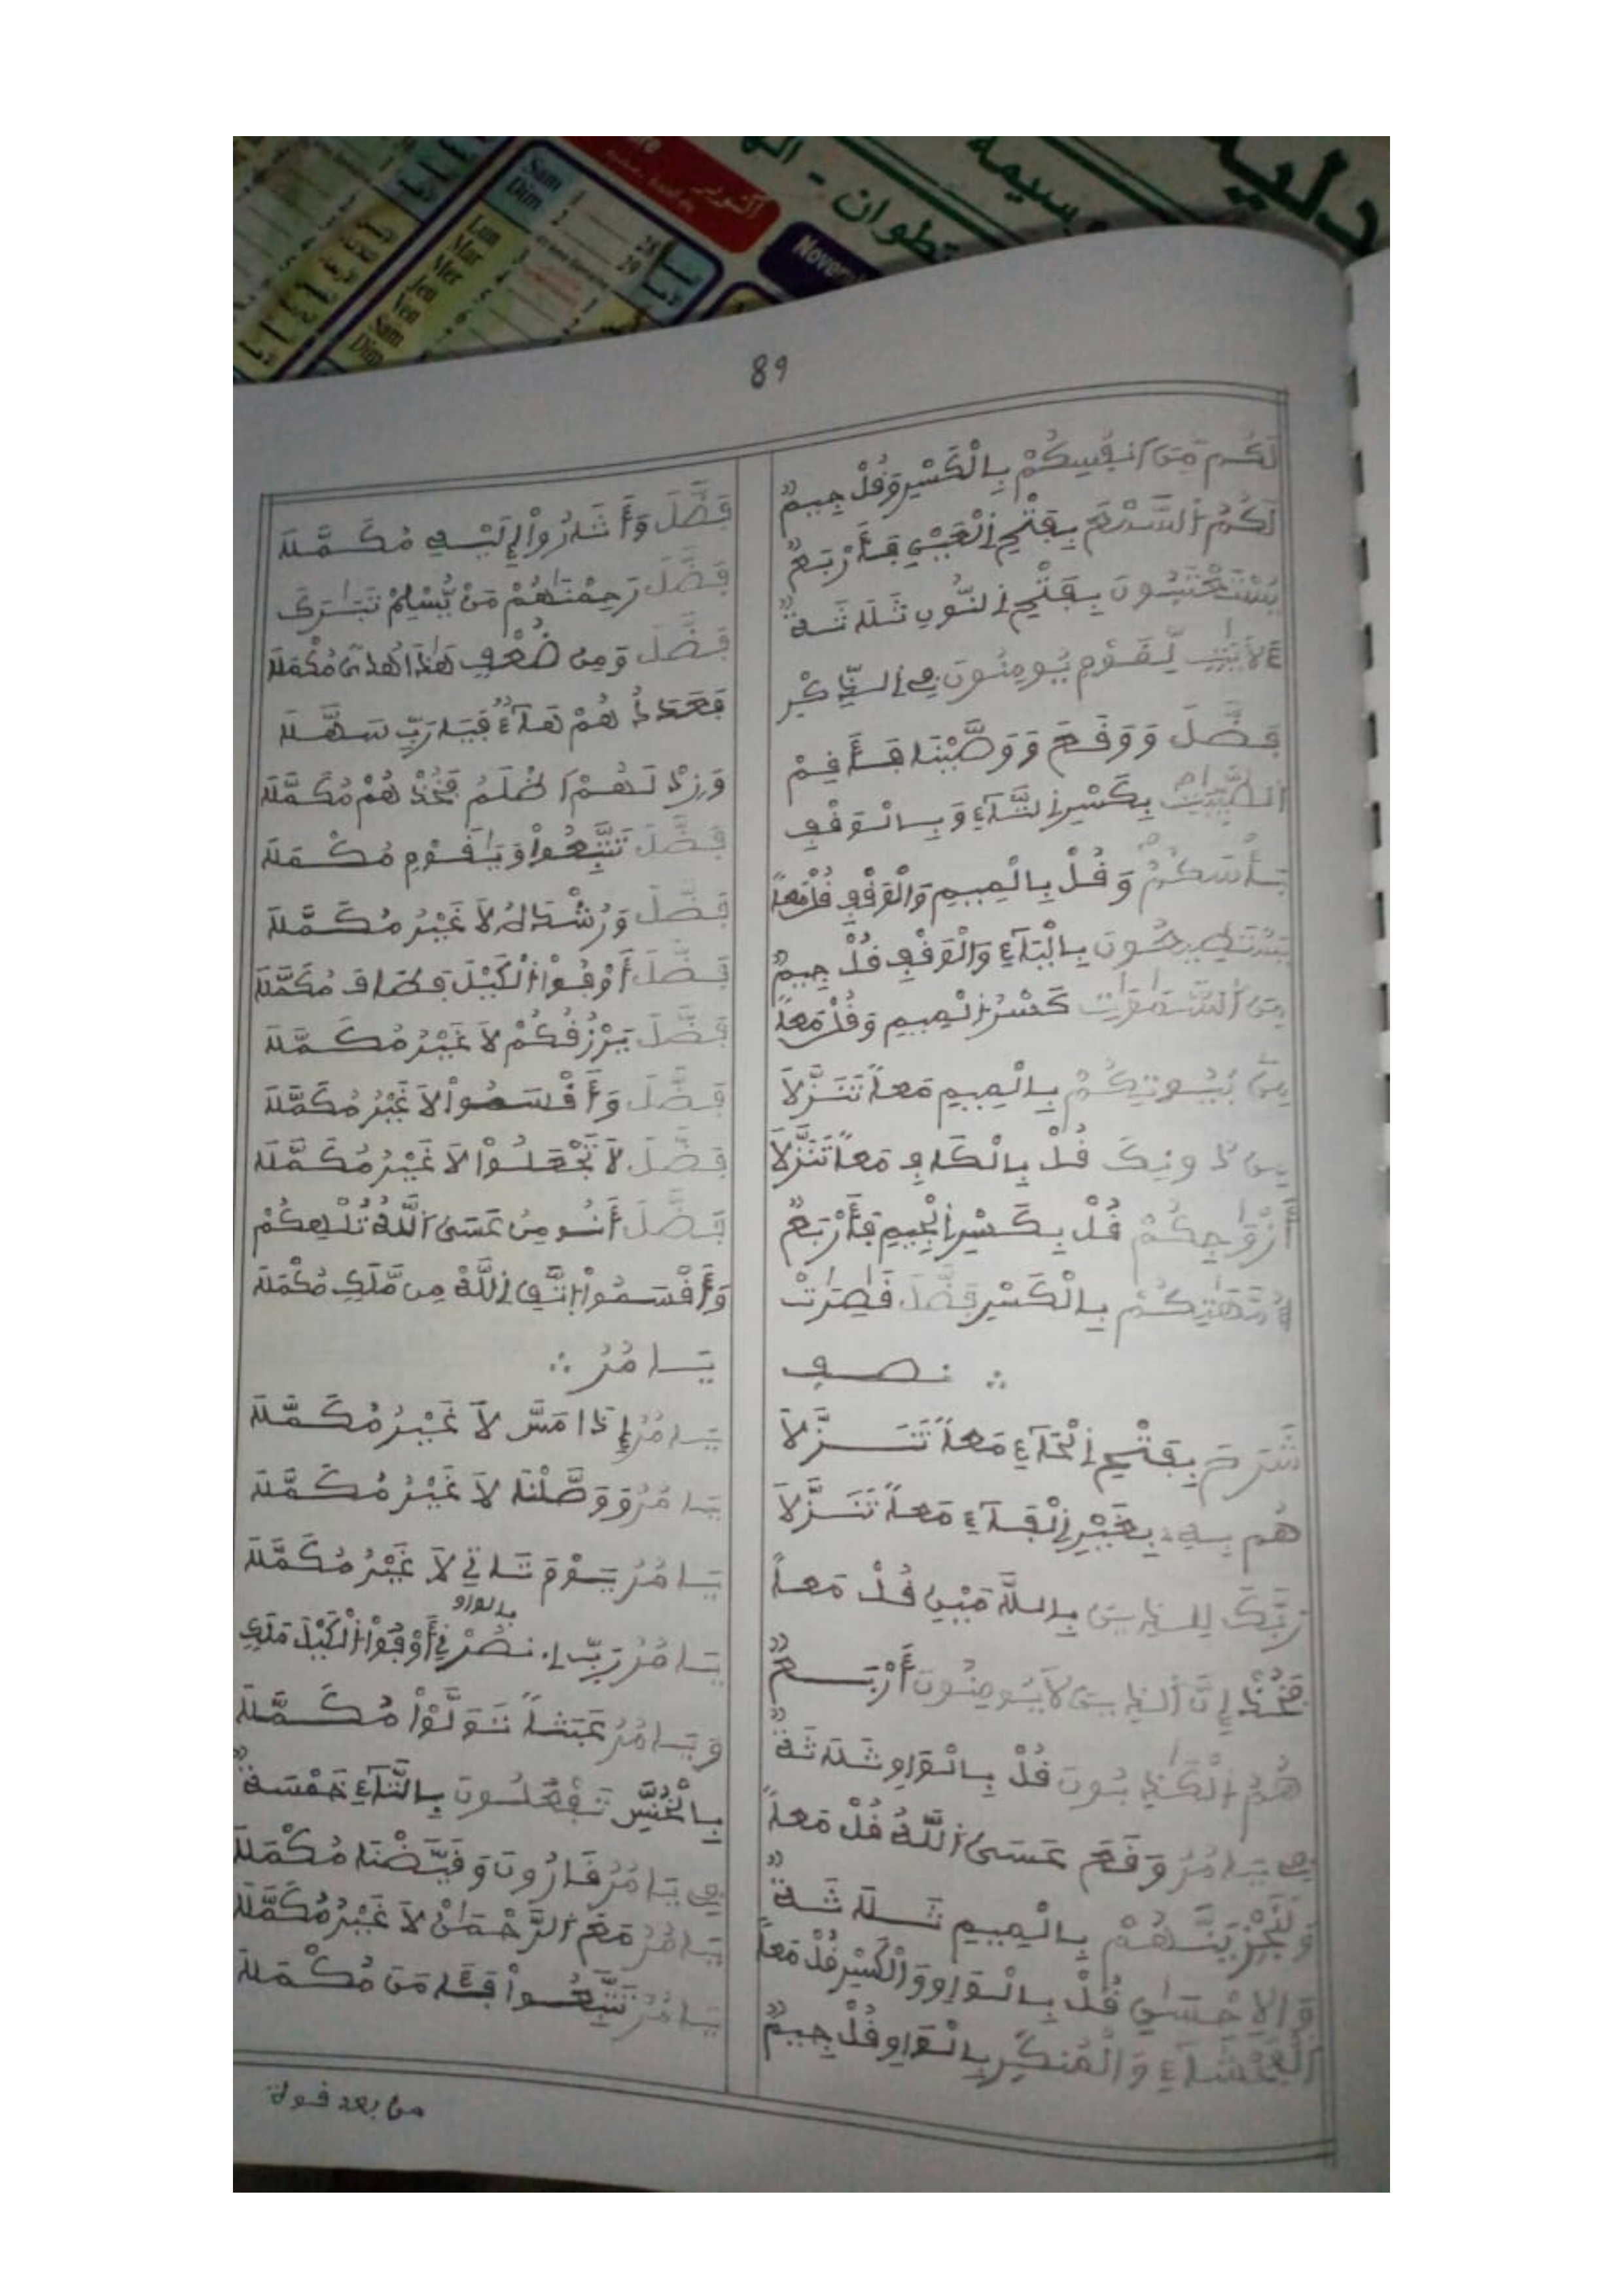 89
لَكُم مِّنَ اَنفُسِكُمْ بِالْكَسْرِ وَقُلْ جِيمٌ
لَكُمُ السَّمْعَ بِفَتْحِ الْعَيْنِ فَأَرْبَعٌ
بِفَتْحِ النُّونِ ثَلَاثَةٌ
ءَلَايَٰتٍ لِّقَوْمٍ يُومِنُونَ فِي الذِّكْرِ
فَضَّلَ وَوَقَعَ وَوَصَّيْنَا فَأَقِمْ
الطَّيِّبَٰتِ بِكَسْرِ التَّاءِ وَبِالْوَقْفِ
بَأْسَكُمْ وَقُلْ بِالْمِيمِ وَالْوَقْفِ قُلْ مَعاً
يَسْتَطِيعُونَ بِالْيَاءِ وَالْوَقْفِ قُلْ جِيمٌ
مِنَ السَّمَٰوَٰتِ كَسْرُ الْمِيمِ وَقُلْ مَعاً
مِنۢ بُيُوتِكُمْ بِالْمِيمِ مَعاً تَنَزَّلَا
مِن دُونِكَ قُلْ بِالْكَافِ مَعاً تَنَزَّلَا
أَزْوَٰجِكُمْ قُلْ بِكَسْرِ الْجِيمِ فَأَرْبَعٌ
أُمَّهَٰتِكُمْ بِالْكَسْرِ فَضَّلَ قَٰصِرَٰتْ
∴ نصف
شَرَحَ بِفَتْحِ الْحَاءِ مَعاً تَنَزَّلَا
هُم بِهِ بِغَيْرِ الْفَاءِ مَعاً تَنَزَّلَا
رَبَّكَ لِلذِينَ بِاللَّامَيْنِ قُلْ مَعاً
إِنَّ الذِينَ لَا يُومِنُونَ أَرْبَعٌ
هُمُ الْكَٰذِبُونَ قُلْ بِالْوَاوِ ثَلَاثَةٌ
فِي يَامُرُ وَقَعَ عَسَى اللَّهُ قُلْ مَعاً
وَلَنَجْزِيَنَّهُمْ بِالْمِيمِ ثَلَاثَةٌ
وَالاِحْسَٰنِ قُلْ بِالْوَاوِ وَالْكَسْرِ قُلْ مَعاً
الْفَحْشَاءِ وَالْمُنكَرِ بِالْوَاوِ قُلْ جِيمٌ
فَضَّلَ وَأَشَارُواْ إِلَيْهِ مُكَمَّلَا
فَضَّلَ رَحِمْنَاهُمْ مَنْ يُّسْلِمْ تَبَٰرَكَ
فَضَّلَ وَمِن ضُعْفٍ هَٰذَا هُدىً مُكْمَلَا
هُمْ هَاءٌ فَيَا رَبِّ سَهِّلَا
وَزِدْ لَهُمْ اَظْلَمُ فَخُذْهُمْ مُكَمَّلَا
فَضَّلَ تَتَّبِعُواْ وَيَٰقَوْمِ مُكْمَلَا
فَضَّلَ وَرُشْدَهُ لَا غَيْرُ مُكَمَّلَا
فَضَّلَ أَوْفُواْ الْكَيْلَ مُكَمَّلَا
فَضَّلَ يَرْزُقُكُمْ لَا غَيْرُ مُكَمَّلَا
فَضَّلَ وَأَقْسَمُواْ لَا غَيْرُ مُكَمَّلَا
فَضَّلَ لَا تَجْعَلُواْ لَا غَيْرُ مُكَمَّلَا
فَضَّلَ عَسَى اللَّهُ
وَأَقْسَمُواْ اتَّقِ اللَّهَ مِن مَّلَكٍ مُكْمَلَا
يَامُرُ ∴
يَامُرُ إِذَا مَسَّ لَا غَيْرُ مُكَمَّلَا
يَامُرُ وَوَصَّلْنَا لَا غَيْرُ مُكَمَّلَا
يَامُرُ يَوْمَ تَاتِي لَا غَيْرُ مُكَمَّلَا
بالواو
يَامُرُ رَبِّ اِنصُرْنِي أَوْفُواْ الْكَيْلَ مَلَكٍ
وَيَامُرُ عَبَثاً تَوَلَّوْاْ مُكَمَّلَا
بِالْخُنَّسِ تَفْعَلُونَ بِالتَّاءِ خَمْسَةٌ
فِي يَامُرُ قَارُونَ وَقَيَّضْنَا مُكْمَلَا
يَامُرُ مَعَ الرَّحْمَٰنِ لَا غَيْرُ مُكَمَّلَا
يَامُرُ تَتَّبِعُواْ مُكْمَلَا
من بعد قوة